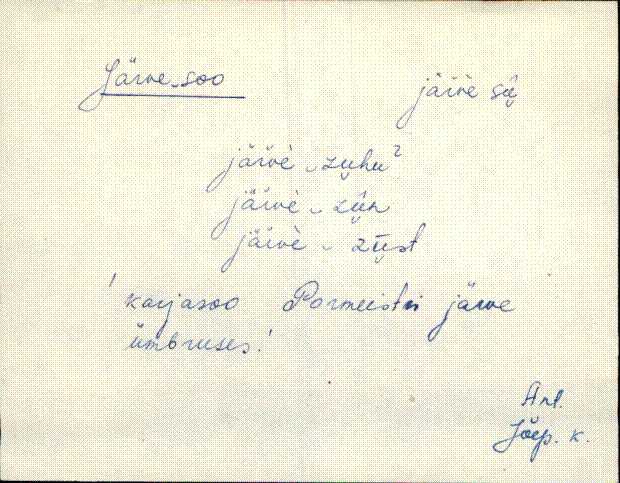 Järve-soo
järvè sụ̄
järvè-zuhu²
järvè-zụ̄n
järvè-zụ̄st
'karjasoo Pormeistri järve
ümbruses.'
Ant.
Jõep. k.